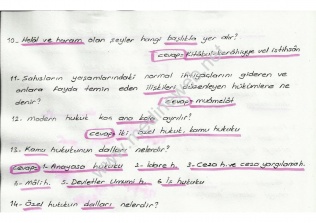 10- Helâl ve haram olan şeyler hangi başlıkta yer alır?
cevap: Kitâbu'l-kerâhiyye vel istihsân
11- Şahısların yaşamlarındaki normal ihtiyaçlarını gideren ve
onlara fayda temin eden ilişkileri düzenleyen hükümlere ne
denir? cevap: muâmelât
12- Modern hukuk kaç ana kola ayrılır?
cevap: iki. özel hukuk, kamu hukuku
13- Kamu hukukunun dalları nelerdir?
cevap: 1- Anayasa hukuku 2- İdare h. 3- Ceza h. ve ceza yargılama h.
4- Mâlî h. 5- Devletler Umumi h. 6- İş hukuku
14- Özel hukukun dalları nelerdir?